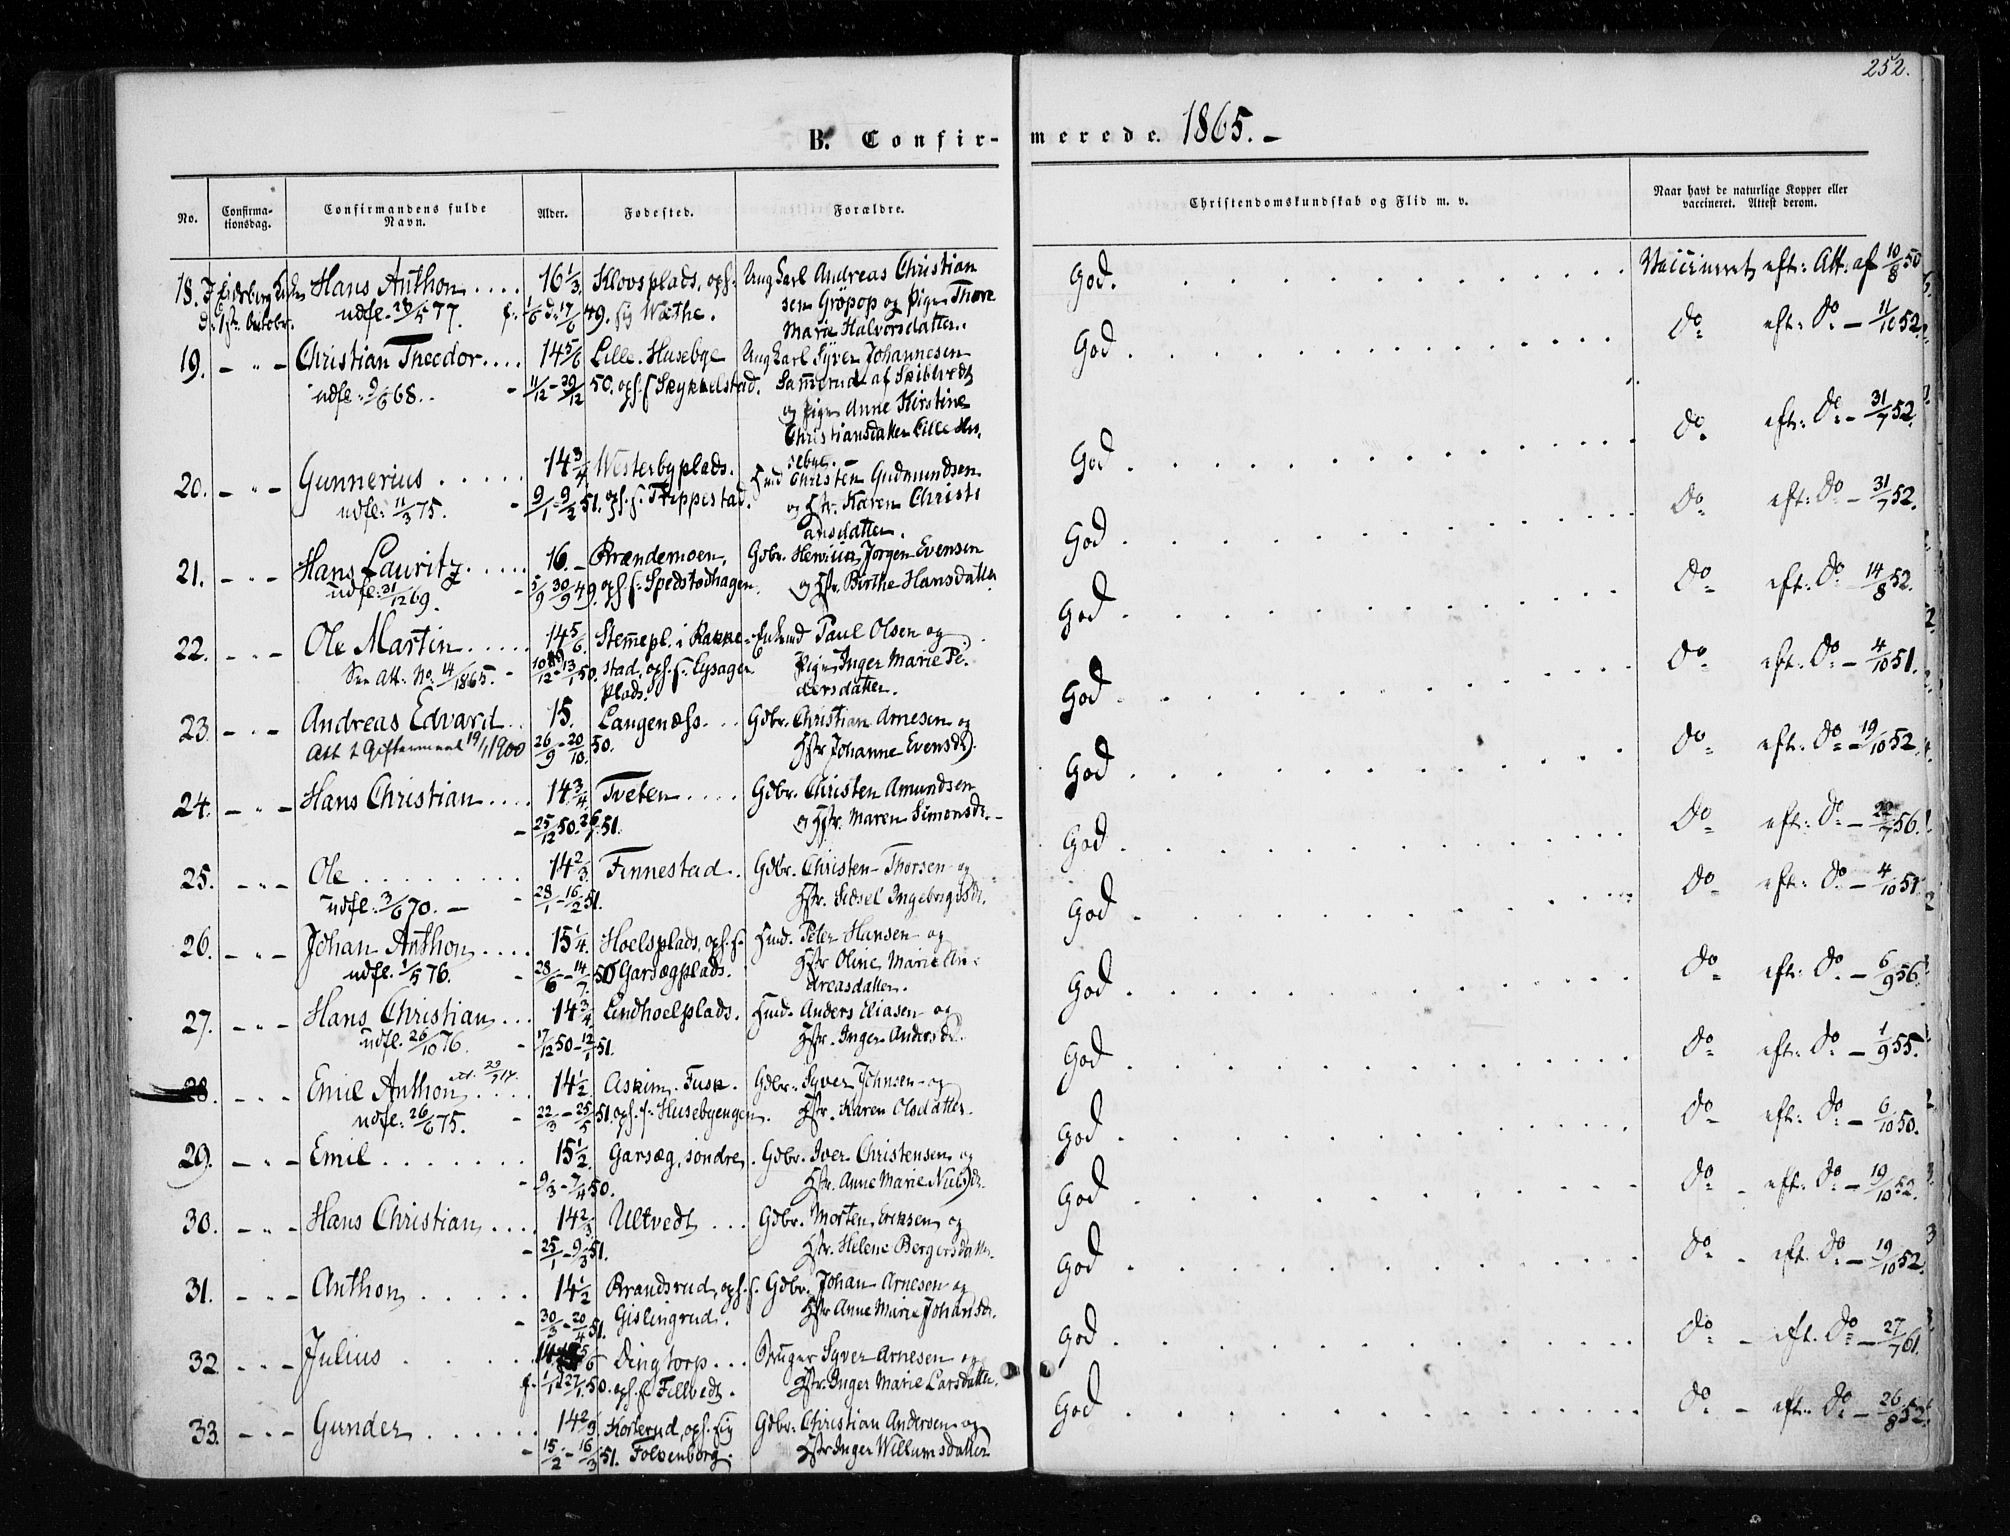 252.
B. Confirmerede. 1865. –
No.
Confirma-
tionsdag.
Confirmandens fulde
Navn.
Alder.
Fødested.
Forældre.
Christendomskundskab og Flid m. v.
Naar havt de naturlige Kopper eller
vaccineret. Attest derom.
18. Hans Anthon .... 16 1/3 Klovsplads, ops. Ung Karl Andreas Christian God. Vaccineret eft: Att: af 10/8 50
d: 1ste Octobr. udfl. 77. 49. sen Grøpop og Pige Thore
Marie Halvorsdatter.
19. – " – Christian Theodor .... 14 5/6 Lille Husebye Ung Karl Syver Johannesen God do eft: do – 11/10 52.
udfl. 9/6 68. 11/12 – 29/12 50. ops. f. Skykkelstad. Samerud af Skibtvedt
og Pige Anne Kirstine
Christiansdatter Lille Hu-
sebye. –
20. – " – Gunnerius ..... 14 3/4 Westerbyplads. Hmd Christen Gudmundsen God do eft: do – 31/7 52.
udfl. 11/3 75. 9/1 – 9/2 51. ops. f. Trippestad. og Hstr. Karen Christi
ansdatter.
21. – " – Hans Lauritz ..... 16 – Brændemoen. Gdbr. Jørgen Evensen God do eft: do – 31/7 52.
udfl. 31/12 69. 5/9 30/9 49. ops. f. Spedstadhagen. og Hstr. Birthe Hansdatter
22. – " – Ole Martin ..... 14 5/6 Stemepl. i Rakke- Enkemd Paul Olsen og God do eft: do – 14/8 52.
See Att. No. 14/1865. – 13/1 50. stad, ops. f. Lysager Pige Inger Marie Pe-
plads. dersdatter.
23. – " – Andreas Edvard .. 15. Langenæss. Gdbr. Christian Arnesen og God do eft: do – 4/10 51.
Att t Giftermaal 19/1 1900 26/9 – 20/10 50. Hstr Johanne Evensd.
24. – " – Hans Christian .... 14 3/4 Tveten .... Gdbr. Christen Amundsen God do eft: do – 19/10 52.
25/12 50. 26/1 51. og Hstr. Maren Simonsdr. –
25. – " – Ole ........ 14 2/3 Finnestad .. Gdbr. Christen Thorsen og God do eft: do – 56.
udfl: 3/6 70. – 28/1 – 16/2 51. Hstr. Sidsel Ingebrigtsdr.
26. – " – Johan Anthon .... 15 1/4 Hoelsplads, ops. f. Hmd. Peter Hansen og God do eft: do – 4/10 51
udfl. 1/5 76. 28/6 – 14/7 50 Garsægplads. Hstr Oline Marie An-
dreasdatter.
27. – " – Hans Christian ... 14 3/4 Lindhoelplads. Hmd. Anders Eliasen og God do eft: do – 6/9 56.
udfl. 26/10 76. 17/12 50 – 12/1 51. Hstr. Inger Andersdr.
28. – " – Emil Anthon .... 14 1/2 Askim. Fusk. Gdbr. Syver Johnsen og God do eft: do – 1/9 55.
udfl: 26/6 75. 22/3 – 25/5 51. ops. f. Husebyengen. Hstr. Karen Olsdatter.
29. – " – Emil ....... 15 1/2 Garsæg, søndre. Gdbr. Iver Christensen og God do eft: do – 6/10 50.
9/3 – 7/4 50. Hstr. Anne Marie Nielsdr.
30. – " – Hans Christian .... 14 2/3 Ultvedt ... Gdbr. Morten Eriksen og God do – eft: do – 19/10 52.
25/1 – 9/3 51. Hstr. Helene Bergersdatter
31. – " – Anthon ..... 14 1/2 Brandsrud, ops. f. Gdbr. Johan Arnesen og God do – eft. do – 19/10 52.
30/3 – 20/4 51. Gislingrud. Hstr Anne Marie Johansdr.
32 – " – Julius ..... Dingtorp ... Bruger Syver Arnesen og God do – eft. do – 27/7 61.
27/1 50. ops. f. Tillvedt. Hstr. Inger Marie Larsdatter.
33. – " – Gunder ...... 14 2/9 Korterud, ops. Gdbr. Christian Andersen og God do – eft. do – 26/8 52.
15/2 – 16/3 51. Folkenborg. Hstr Inger Willumsdatter